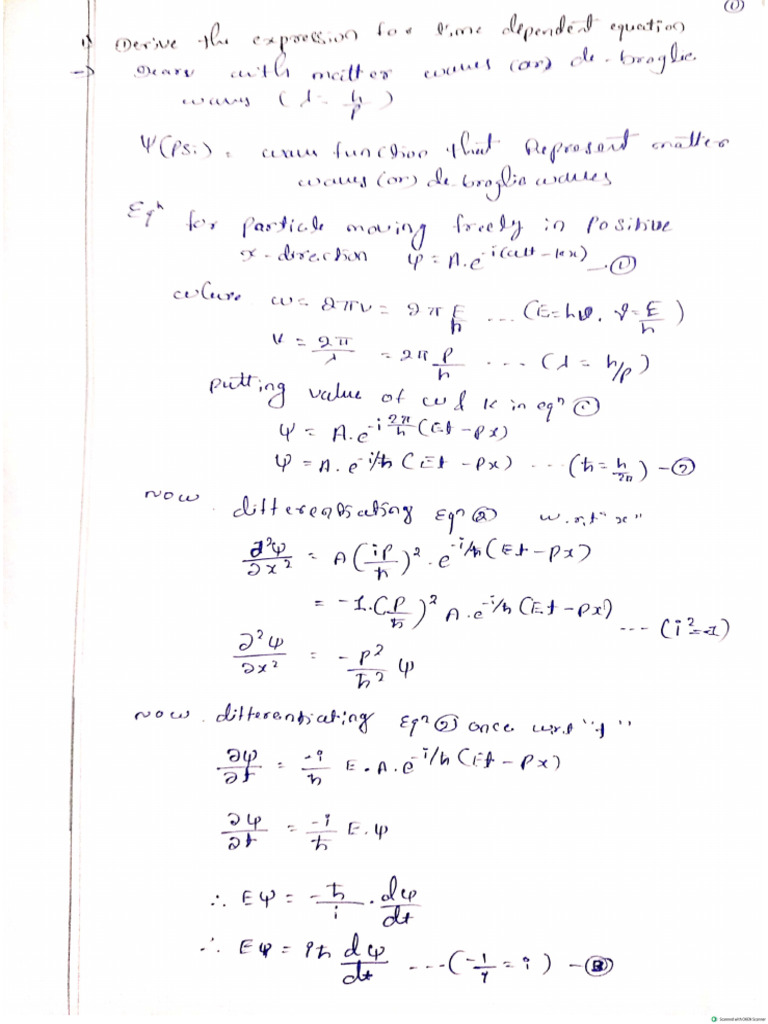 ①
1) Derive the expression for time dependent equation
→ with matter waves (or) de-broglie
waves (λ = h/p)
ψ(Psi) = wave function that Represent matter
waves (or) de-broglie waves
Eqⁿ for particle moving freely in positive
x-direction ψ = A.e^-i(ωt-kx) —①
where ω = 2πν = 2π E/h ... (E=hν. ν=E/h)
k = 2π/λ = 2π P/h ... (λ = h/p)
putting value of ω & k in eqⁿ ①
ψ = A.e^-i 2π/h (Et - px)
ψ = A.e^-i/ħ (Et - px) ... (ħ = h/2π) —②
now differentiating Eqⁿ ② w.r.t "x"
∂²ψ/∂x² = A(ip/ħ)².e^-i/ħ(Et - px)
= -1.(P/ħ)² A.e^-i/ħ(Et - px) ... (i²=-1)
∂²ψ/∂x² = -p²/ħ² ψ
now differentiating Eqⁿ ② once w.r.t "t"
∂ψ/∂t = -i/ħ E.A.e^-i/ħ(Et - Px)
∂ψ/∂t = -i/ħ E.ψ
∴ Eψ = -ħ/i . dψ/dt
∴ Eψ = iħ dψ/dt ...(-1/i = i) —③
Scanned with OKEN Scanner